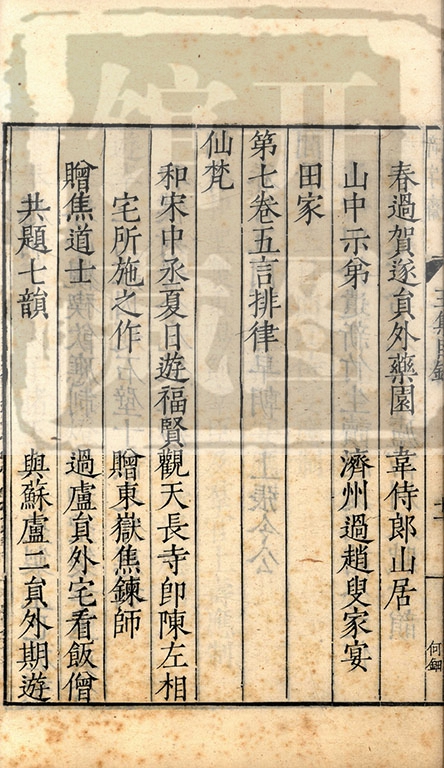 春過賀遂貟外藥園　韋侍郎山居
山中示弟　濟州過趙叟家宴
田家
第七卷五言排律
仙梵
和宋中丞夏日遊福賢觀天長寺即陳左相
宅所施之作　贈東嶽焦鍊師
贈焦道士　過盧貟外宅看飯僧
共題七韻　與蘇盧二貟外期遊
何鈿